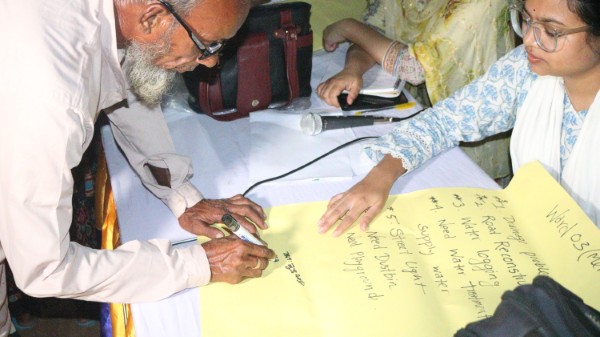 Ward 03 (M
#1 Drainage
#2 Road Reconstu
#3 With logging
#4 Need Water
Supply water
#5 Street Light
Need Dustbin
Need Playground.